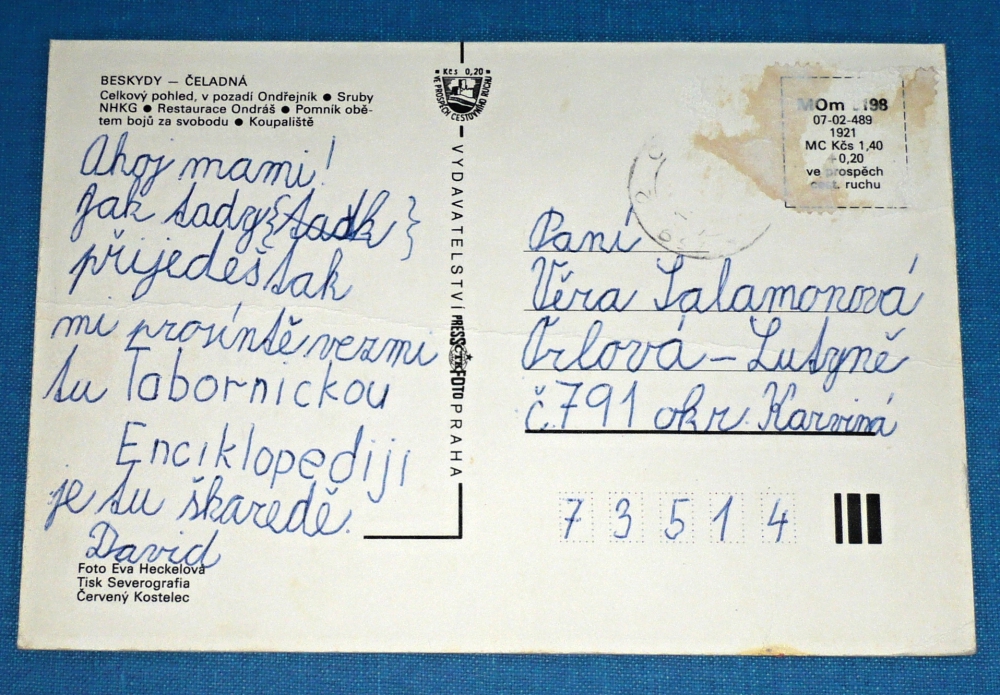 BESKYDY — ČELADNÁ
Celkový pohled, v pozadí Ondřejník ● Sruby
NHKG ● Restaurace Ondráš ● Pomník obě-
tem bojů za svobodu ● Koupaliště
Ahoj mami!
Jak tady {tadk}
přijedéš tak
mi prosíntě vezmi
tu Tabornickou
Enciklopediji
je tu škaredě.
David
Foto Eva Heckelová
Tisk Severografia
Červený Kostelec
Kčs 0,20
VE PROSPĚCH CESTOVNÍHO RUCHU
VYDAVATELSTVÍ PRESSFOTO PRAHA
MOm 198
07-02-489
1921
MC Kčs 1,40
+0,20
ve prospěch
cest. ruchu
Paní
Věra Salamonová
Orlová – Lutyně
č. 791 okr. Karviná
7 3 5 1 4